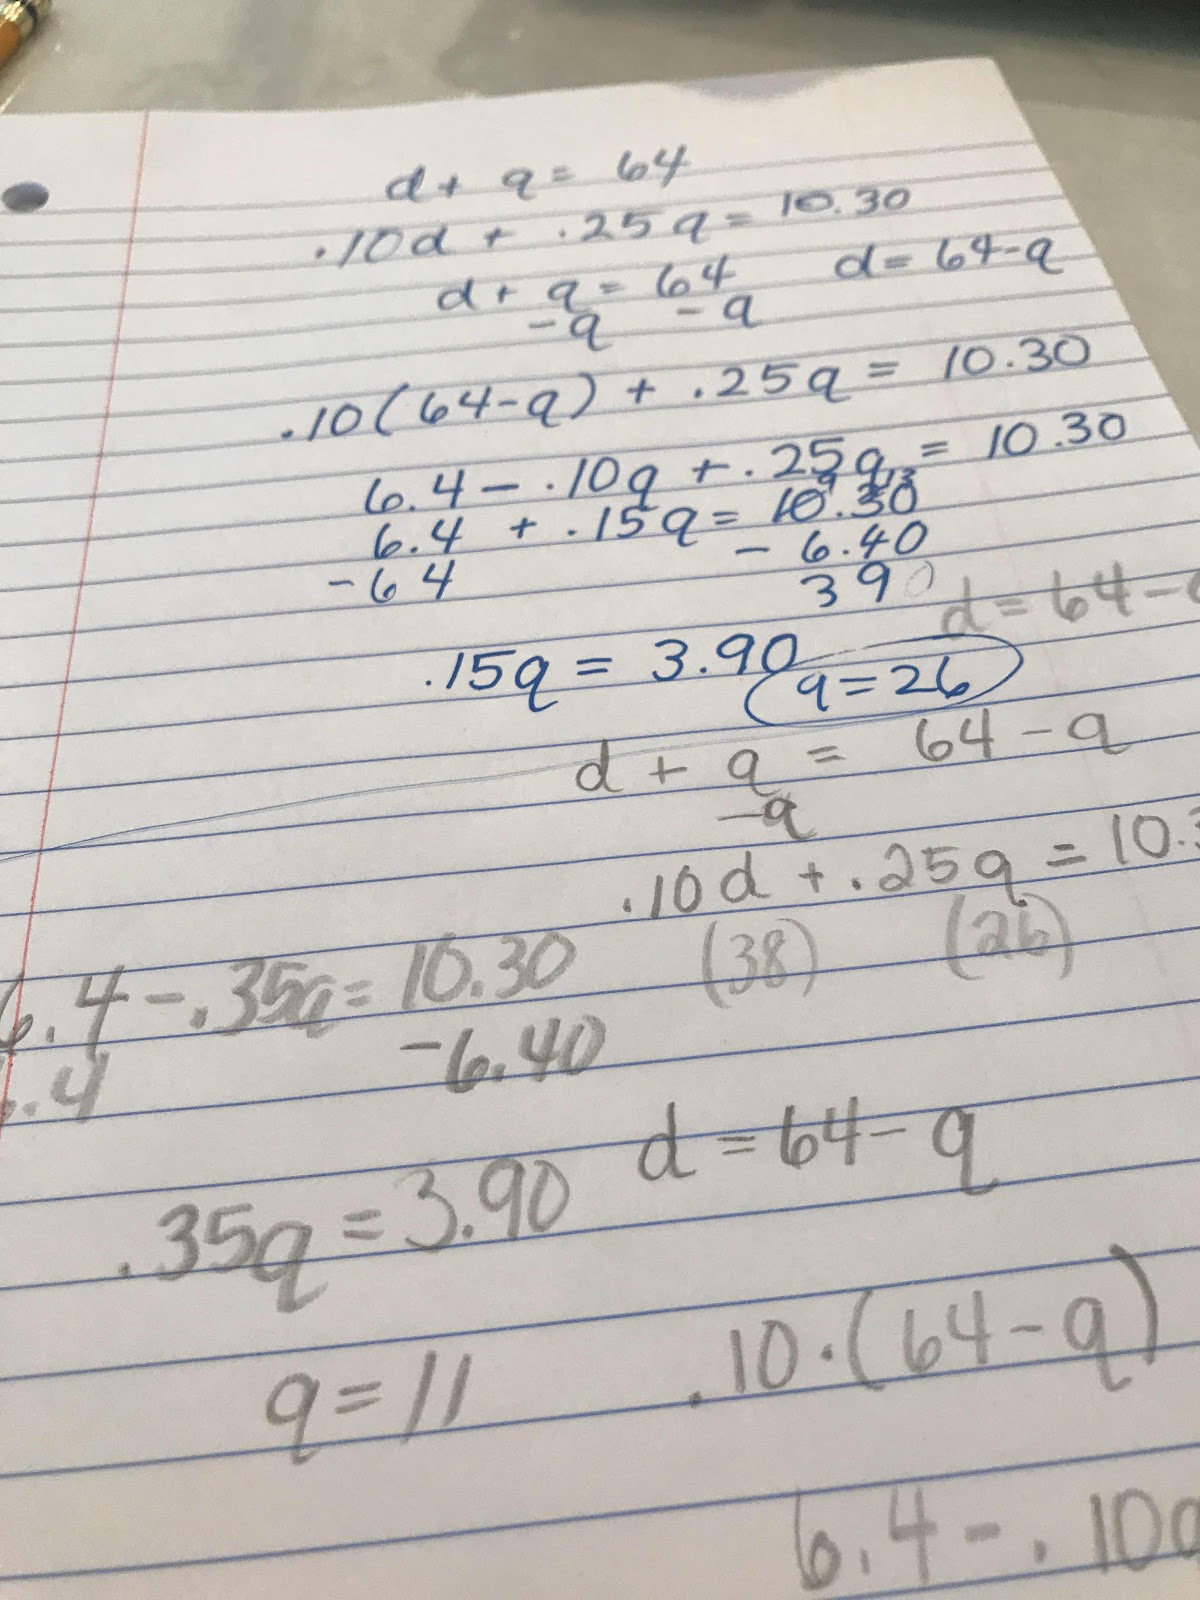 d + q = 64
.10d + .25q = 10.30
d + q = 64 d = 64-q
-q -q
.10(64-q) + .25q = 10.30
6.4 - .10q + .25q = 10.30
9 13
6.4 + .15q = 10.30
-64 - 6.40
390
d = 64-
.15q = 3.90 q=26
d + q = 64-q
-q
.10d + .25q = 10.3
(38) (26)
6.4-.35q= 10.30
.4 -6.40
d = 64-q
.35q = 3.90
.10·(64-q)
q = 11
6.4 - .10q